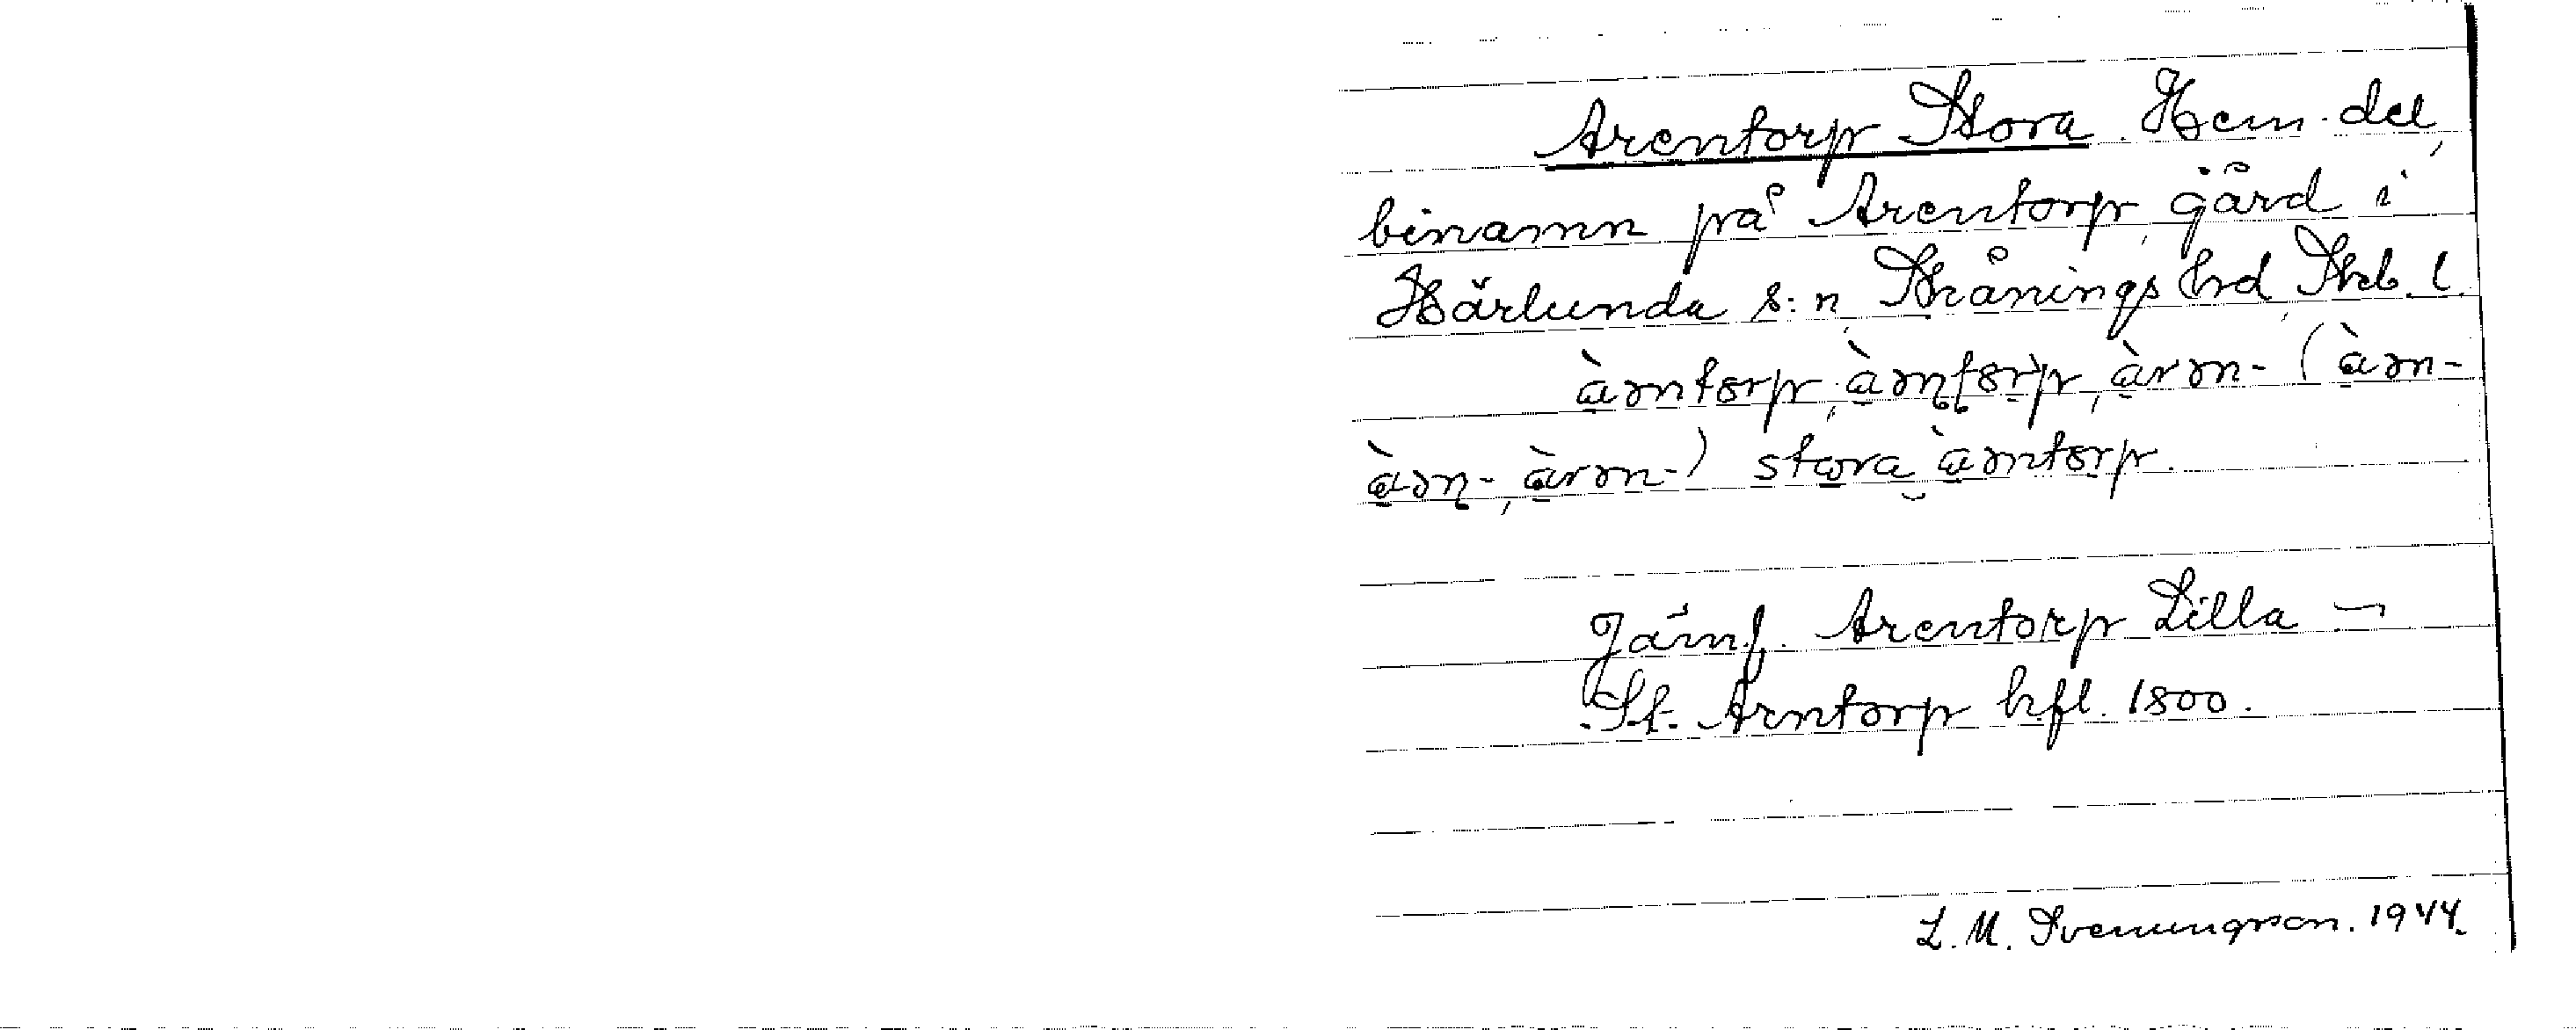 Arentorp Stora. Hem. del,
binamn på Arentorp, gård i
Härlunda s:n, Skånings hrd, Skb. l.
àəntɷrp, àəɳʈɷrp, àrən- ( àən-
àəɳ-, àrən-) stɷra àəntɷrp.
Jämf. Arentorp Lilla —
St. Arntorp hfl. 1800.
L. M. Svenungson. 1944.